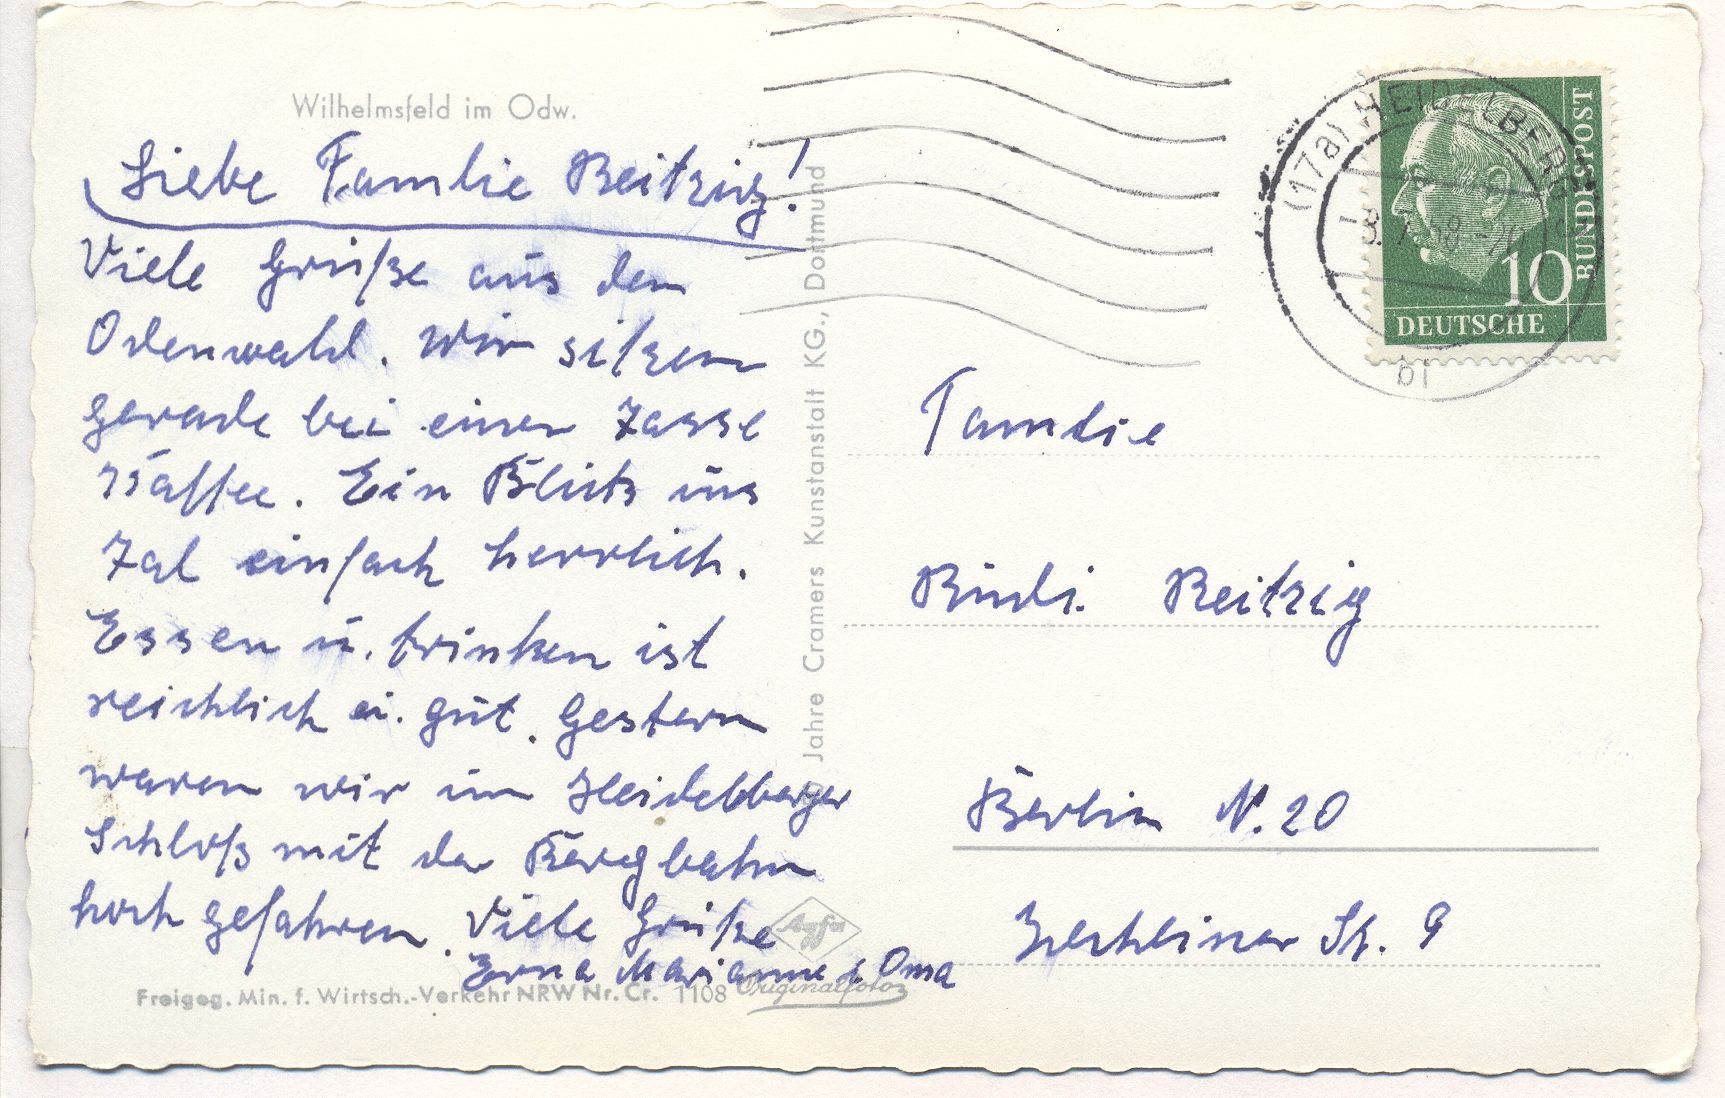 Wilhelmsfeld im Odw.
Liebe Familie Reitzig!
Viele Grüße aus dem
Odenwald. Wir sitzen
gerade bei einer Tasse
Kaffee. Ein Blick ins
Tal einfach herrlich.
Essen u. trinken ist
reichlich u. gut. Gestern
waren wir im Heidelberger
Schloß mit der Bergbahn
hoch gefahren. Viele Grüße
Erna Marianne u Oma
Freigeg. Min. f. Wirtsch.-Verkehr NRW Nr. Cr. 1108
Agfa
Originalfoto
Jahre Cramers Kunstanstalt KG., Dortmund
(17a) HEIDELBERG
DEUTSCHE
BUNDESPOST
10
Familie
Rudi Reitzig
Berlin N. 20
Zechliner St. 9